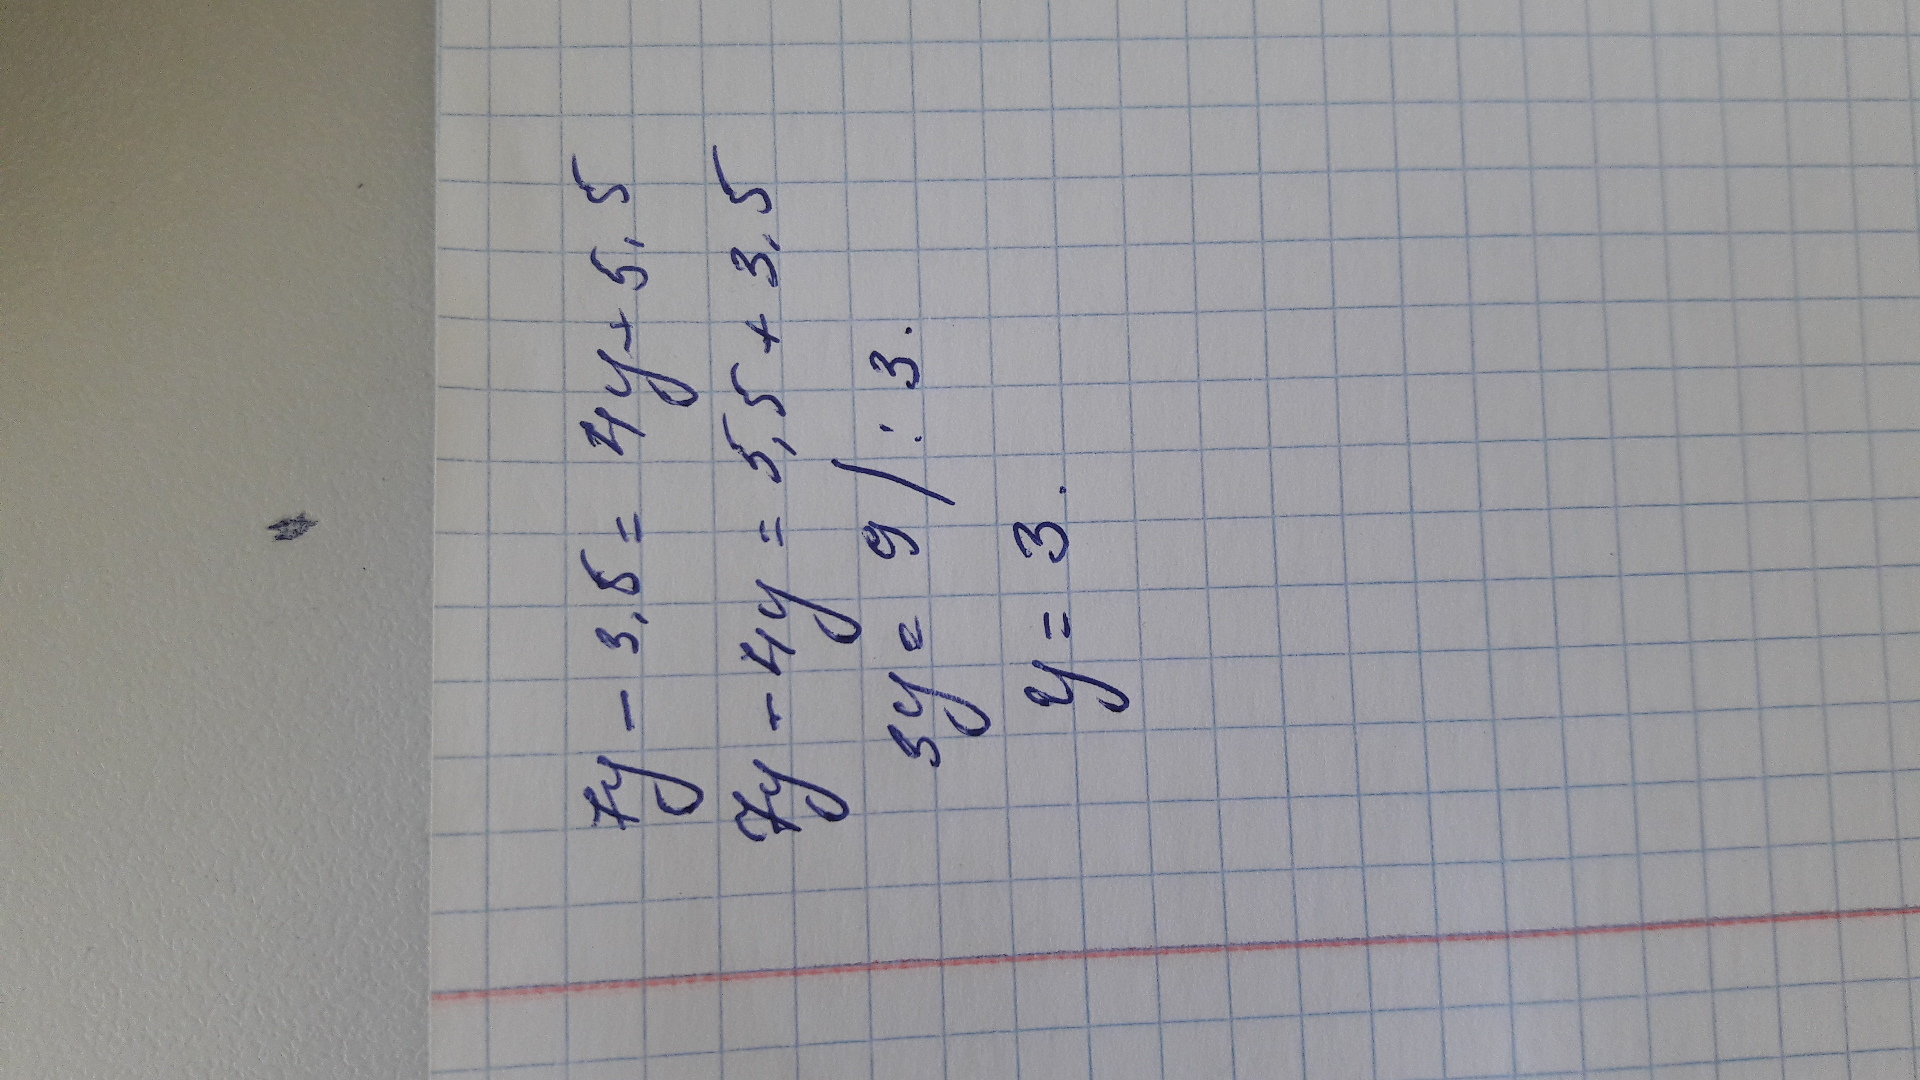 7y - 3,5 = 4y + 5,5
7y - 4y = 5,5 + 3,5
3y = 9 / : 3.
y = 3.